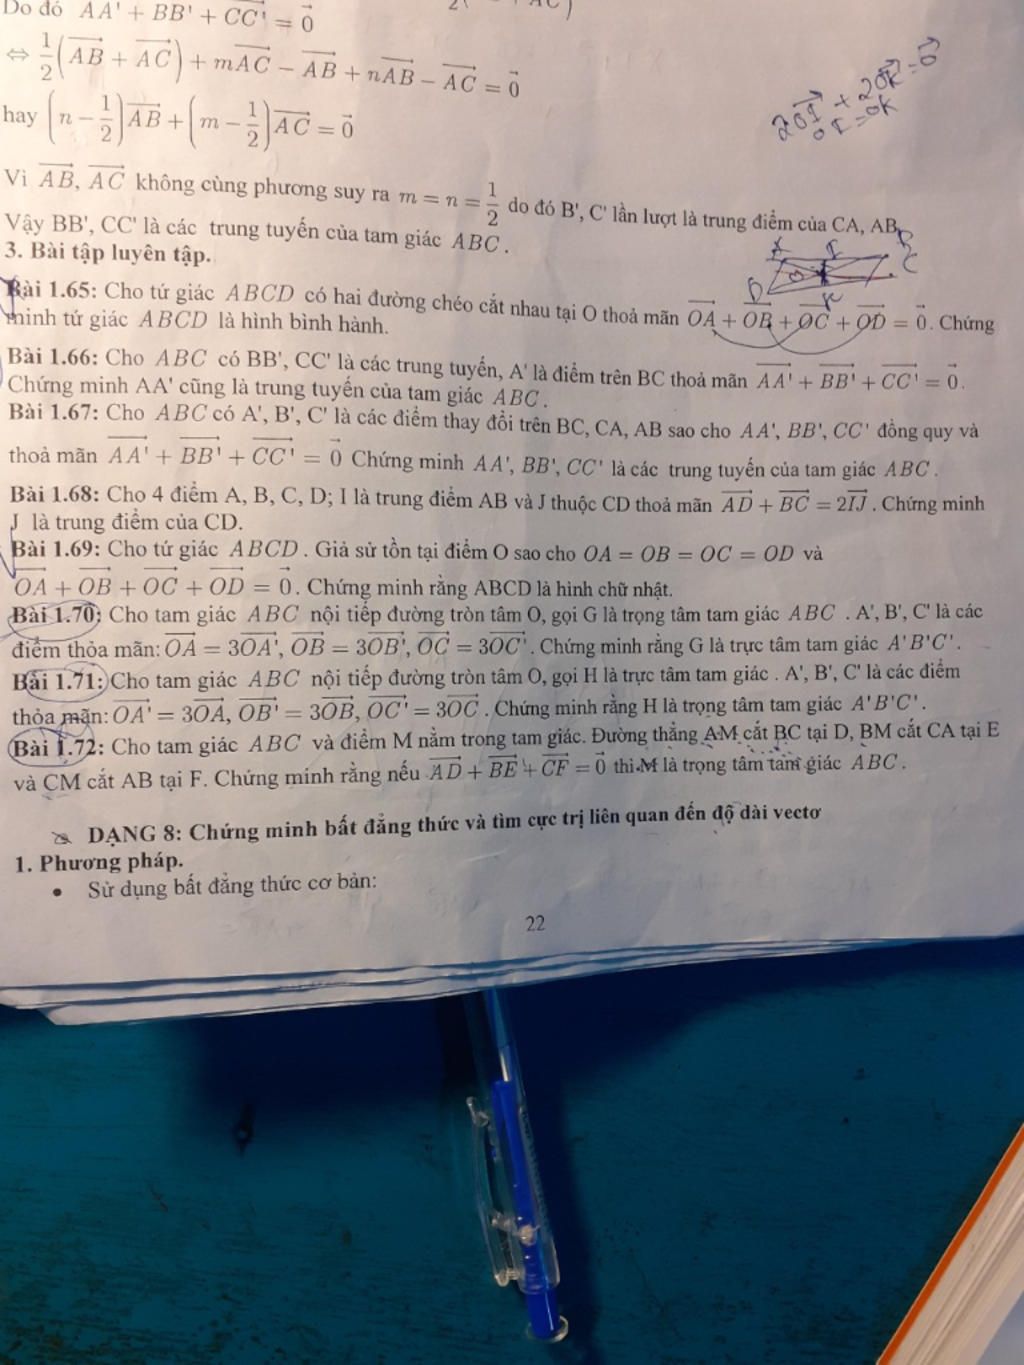 Do đó $\overrightarrow{AA'} + \overrightarrow{BB'} + \overrightarrow{CC'} = \vec{0}$
$\Leftrightarrow \frac{1}{2}\left(\overrightarrow{AB} + \overrightarrow{AC}\right) + m\overrightarrow{AC} - \overrightarrow{AB} + n\overrightarrow{AB} - \overrightarrow{AC} = \vec{0}$
hay $\left(n - \frac{1}{2}\right)\overrightarrow{AB} + \left(m - \frac{1}{2}\right)\overrightarrow{AC} = \vec{0}$
$2\overrightarrow{OI} + 2\overrightarrow{OK} = \vec{0}$
OI = OK
Vì $\overrightarrow{AB}, \overrightarrow{AC}$ không cùng phương suy ra $m = n = \frac{1}{2}$ do đó B', C' lần lượt là trung điểm của CA, AB
Vậy BB', CC' là các trung tuyến của tam giác ABC.
3. Bài tập luyên tập.
Bài 1.65: Cho tứ giác ABCD có hai đường chéo cắt nhau tại O thoả mãn $\overrightarrow{OA} + \overrightarrow{OB} + \overrightarrow{OC} + \overrightarrow{OD} = \vec{0}$. Chứng
minh tứ giác ABCD là hình bình hành.
Bài 1.66: Cho ABC có BB', CC' là các trung tuyến, A' là điểm trên BC thoả mãn $\overrightarrow{AA'} + \overrightarrow{BB'} + \overrightarrow{CC'} = \vec{0}$.
Chứng minh AA' cũng là trung tuyến của tam giác ABC.
Bài 1.67: Cho ABC có A', B', C' là các điểm thay đổi trên BC, CA, AB sao cho AA', BB', CC' đồng quy và
thoả mãn $\overrightarrow{AA'} + \overrightarrow{BB'} + \overrightarrow{CC'} = \vec{0}$ Chứng minh AA', BB', CC' là các trung tuyến của tam giác ABC.
Bài 1.68: Cho 4 điểm A, B, C, D; I là trung điểm AB và J thuộc CD thoả mãn $\overrightarrow{AD} + \overrightarrow{BC} = 2\overrightarrow{IJ}$. Chứng minh
J là trung điểm của CD.
Bài 1.69: Cho tứ giác ABCD. Giả sử tồn tại điểm O sao cho OA = OB = OC = OD và
$\overrightarrow{OA} + \overrightarrow{OB} + \overrightarrow{OC} + \overrightarrow{OD} = \vec{0}$. Chứng minh rằng ABCD là hình chữ nhật.
Bài 1.70: Cho tam giác ABC nội tiếp đường tròn tâm O, gọi G là trọng tâm tam giác ABC. A', B', C' là các
điểm thỏa mãn: $\overrightarrow{OA} = 3\overrightarrow{OA'}, \overrightarrow{OB} = 3\overrightarrow{OB'}, \overrightarrow{OC} = 3\overrightarrow{OC'}$. Chứng minh rằng G là trực tâm tam giác A'B'C'.
Bài 1.71: Cho tam giác ABC nội tiếp đường tròn tâm O, gọi H là trực tâm tam giác . A', B', C' là các điểm
thỏa mãn: $\overrightarrow{OA'} = 3\overrightarrow{OA}, \overrightarrow{OB'} = 3\overrightarrow{OB}, \overrightarrow{OC'} = 3\overrightarrow{OC}$. Chứng minh rằng H là trọng tâm tam giác A'B'C'.
Bài 1.72: Cho tam giác ABC và điểm M nằm trong tam giác. Đường thẳng AM cắt BC tại D, BM cắt CA tại E
và CM cắt AB tại F. Chứng minh rằng nếu $\overrightarrow{AD} + \overrightarrow{BE} + \overrightarrow{CF} = \vec{0}$ thì M là trọng tâm tam giác ABC.
DẠNG 8: Chứng minh bất đẳng thức và tìm cực trị liên quan đến độ dài vectơ
1. Phương pháp.
• Sử dụng bất đẳng thức cơ bản:
22